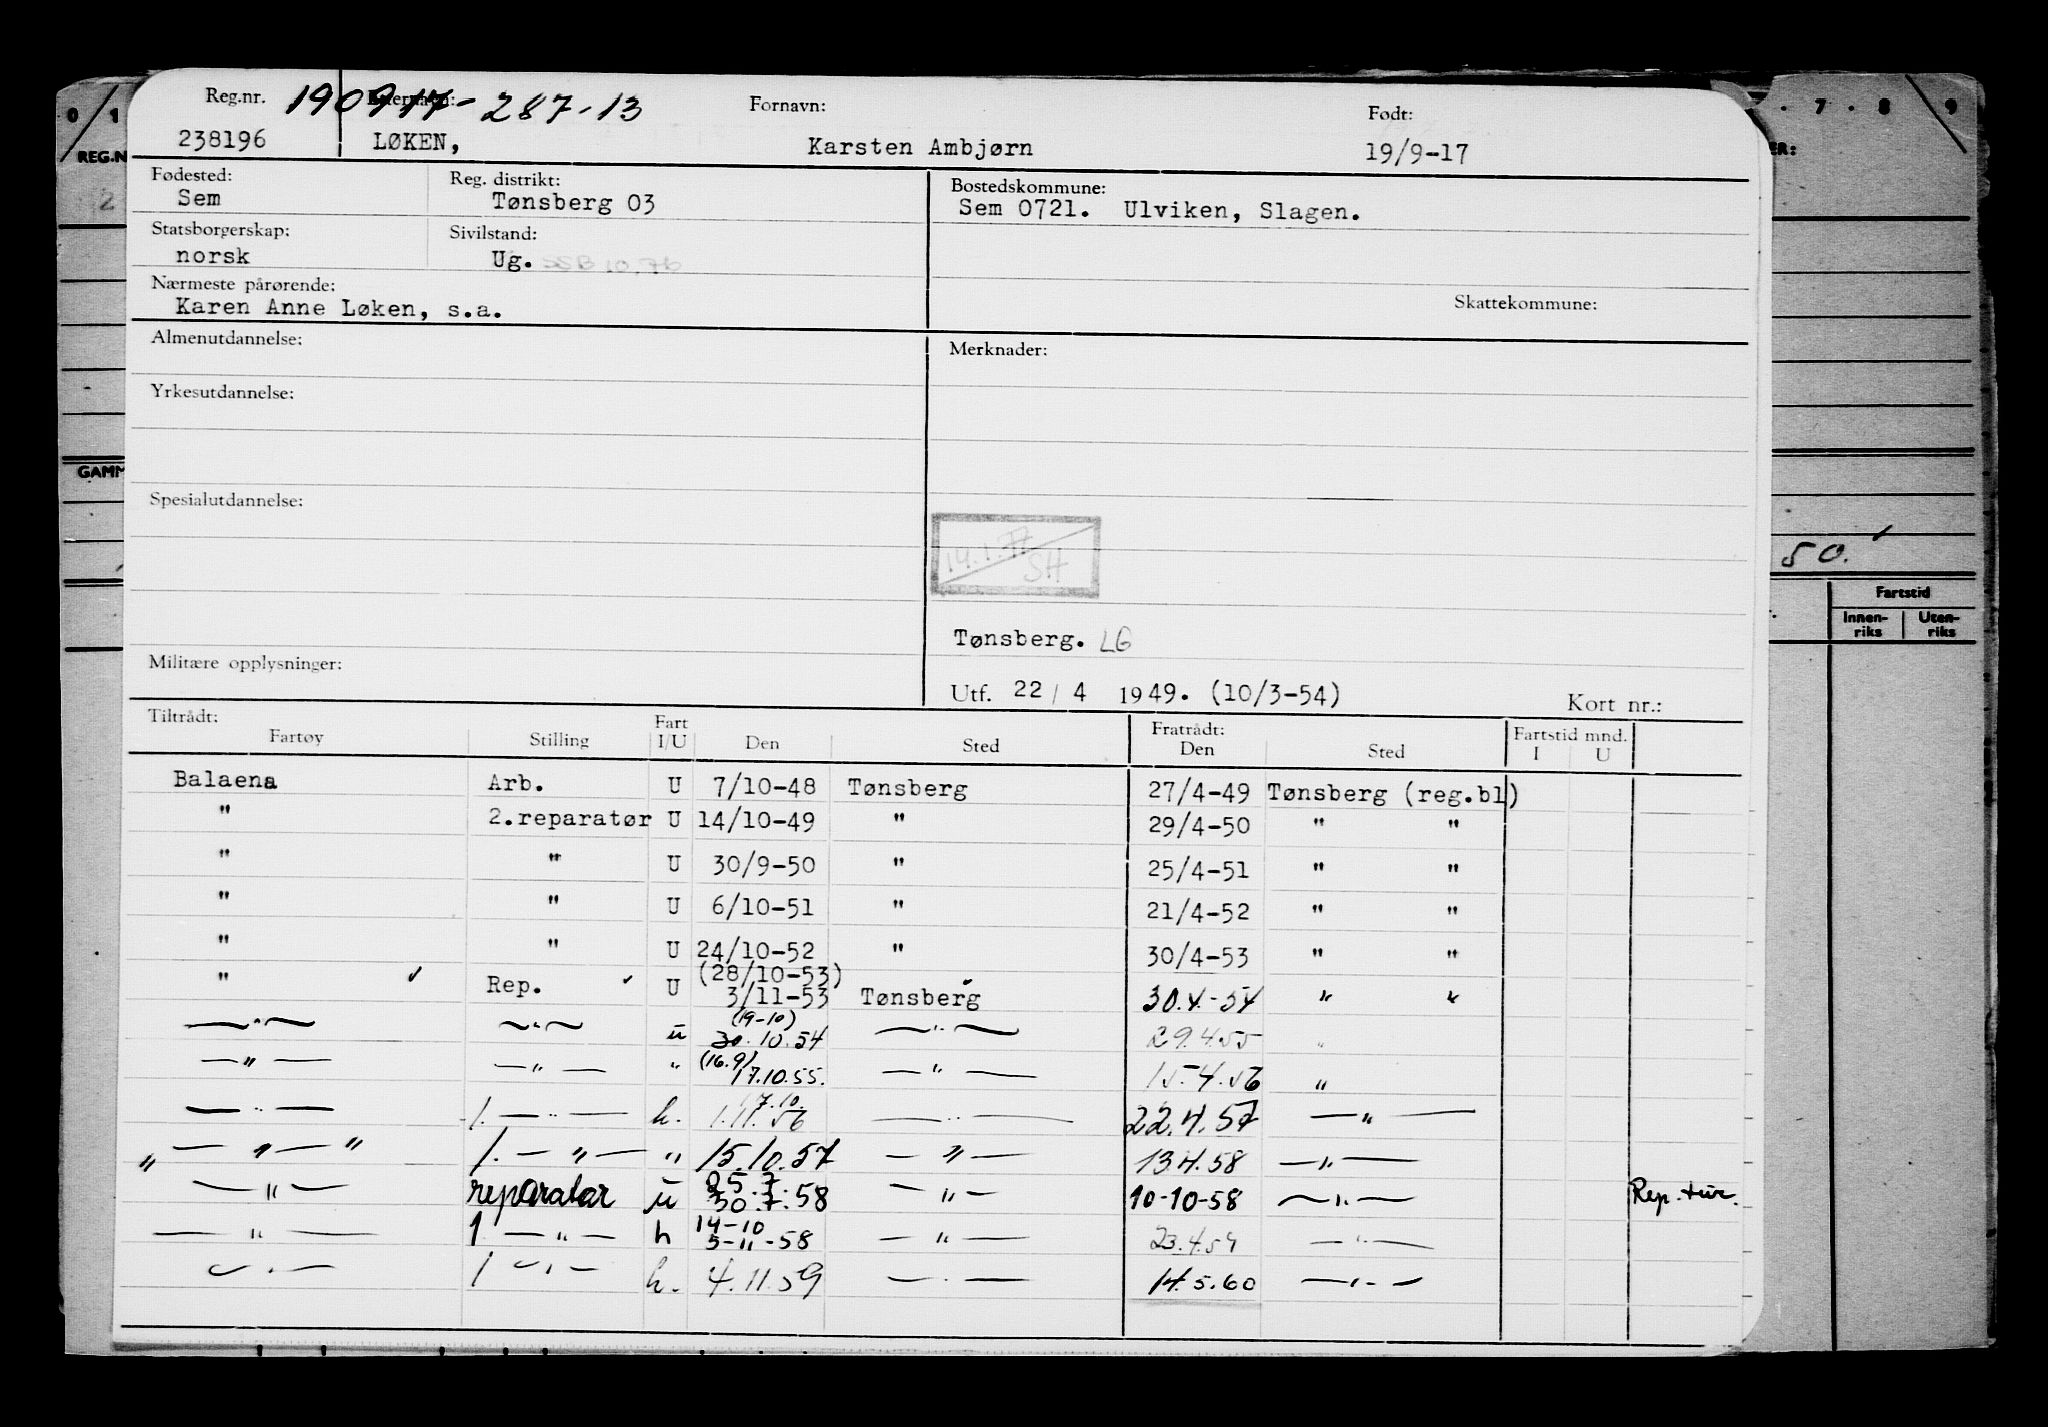 Reg.nr. Etternavn: 190917-287-13 Fornavn: Født:
238196 LØKEN, Karsten Ambjørn 19/9-17
Fødested: Reg. distrikt: Bostedskommune:
Sem Tønsberg 03 Sem 0721. Ulviken, Slagen.
Statsborgerskap: Sivilstand:
norsk Ug. SSB 10.76
Nærmeste pårørende: Skattekommune:
Karen Anne Løken, s.a.
Almenutdannelse: Merknader:
Yrkesutdannelse:
Spesialutdannelse:
14.1.77 SH
Tønsberg. LG
Militære opplysninger:
Utf. 22 / 4 1949. (10/3-54) Kort nr.:
Tiltrådt: Fart Fratrådt: Fartstid mnd.
Fartøy Stilling I/U Den Sted Den Sted I U
Balaena Arb. U 7/10-48 Tønsberg 27/4-49 Tønsberg (reg.bl)
" 2.reparatør U 14/10-49 " 29/4-50 " "
" " U 30/9-50 " 25/4-51 " "
" " U 6/10-51 " 21/4-52 " "
" " U 24/10-52 " 30/4-53 " "
" Rep. U (28/10-53) 3/11-53 Tønsberg 30.4.-54 " "
—"— —"— u (19-10) 30.10.54 —"— 29.4.55 "
—"— —"— " (16.9) 17.10.55. —"— 15.4.56 "
—"— 1. —"— h. 17.10. 1.11.56 —"— 22.4.57 —"—
" —"— " 1. —"— " 15.10.57 —"— 13.4.58 —"—
—"— reparatør u 25.7 30.7.58 —"— 10-10-58 —"— Rep. tur.
—"— 1 —"— h 14-10 5-11-58 —"— 23.4.59 —"—
—"— 1 —"— h. 4.11.59 —"— 14.5.60 —"—
0 1
REG.N
2
GAMM
7 . 8 9
ER:
50.
Fartstid
Innen-riks Uten-riks